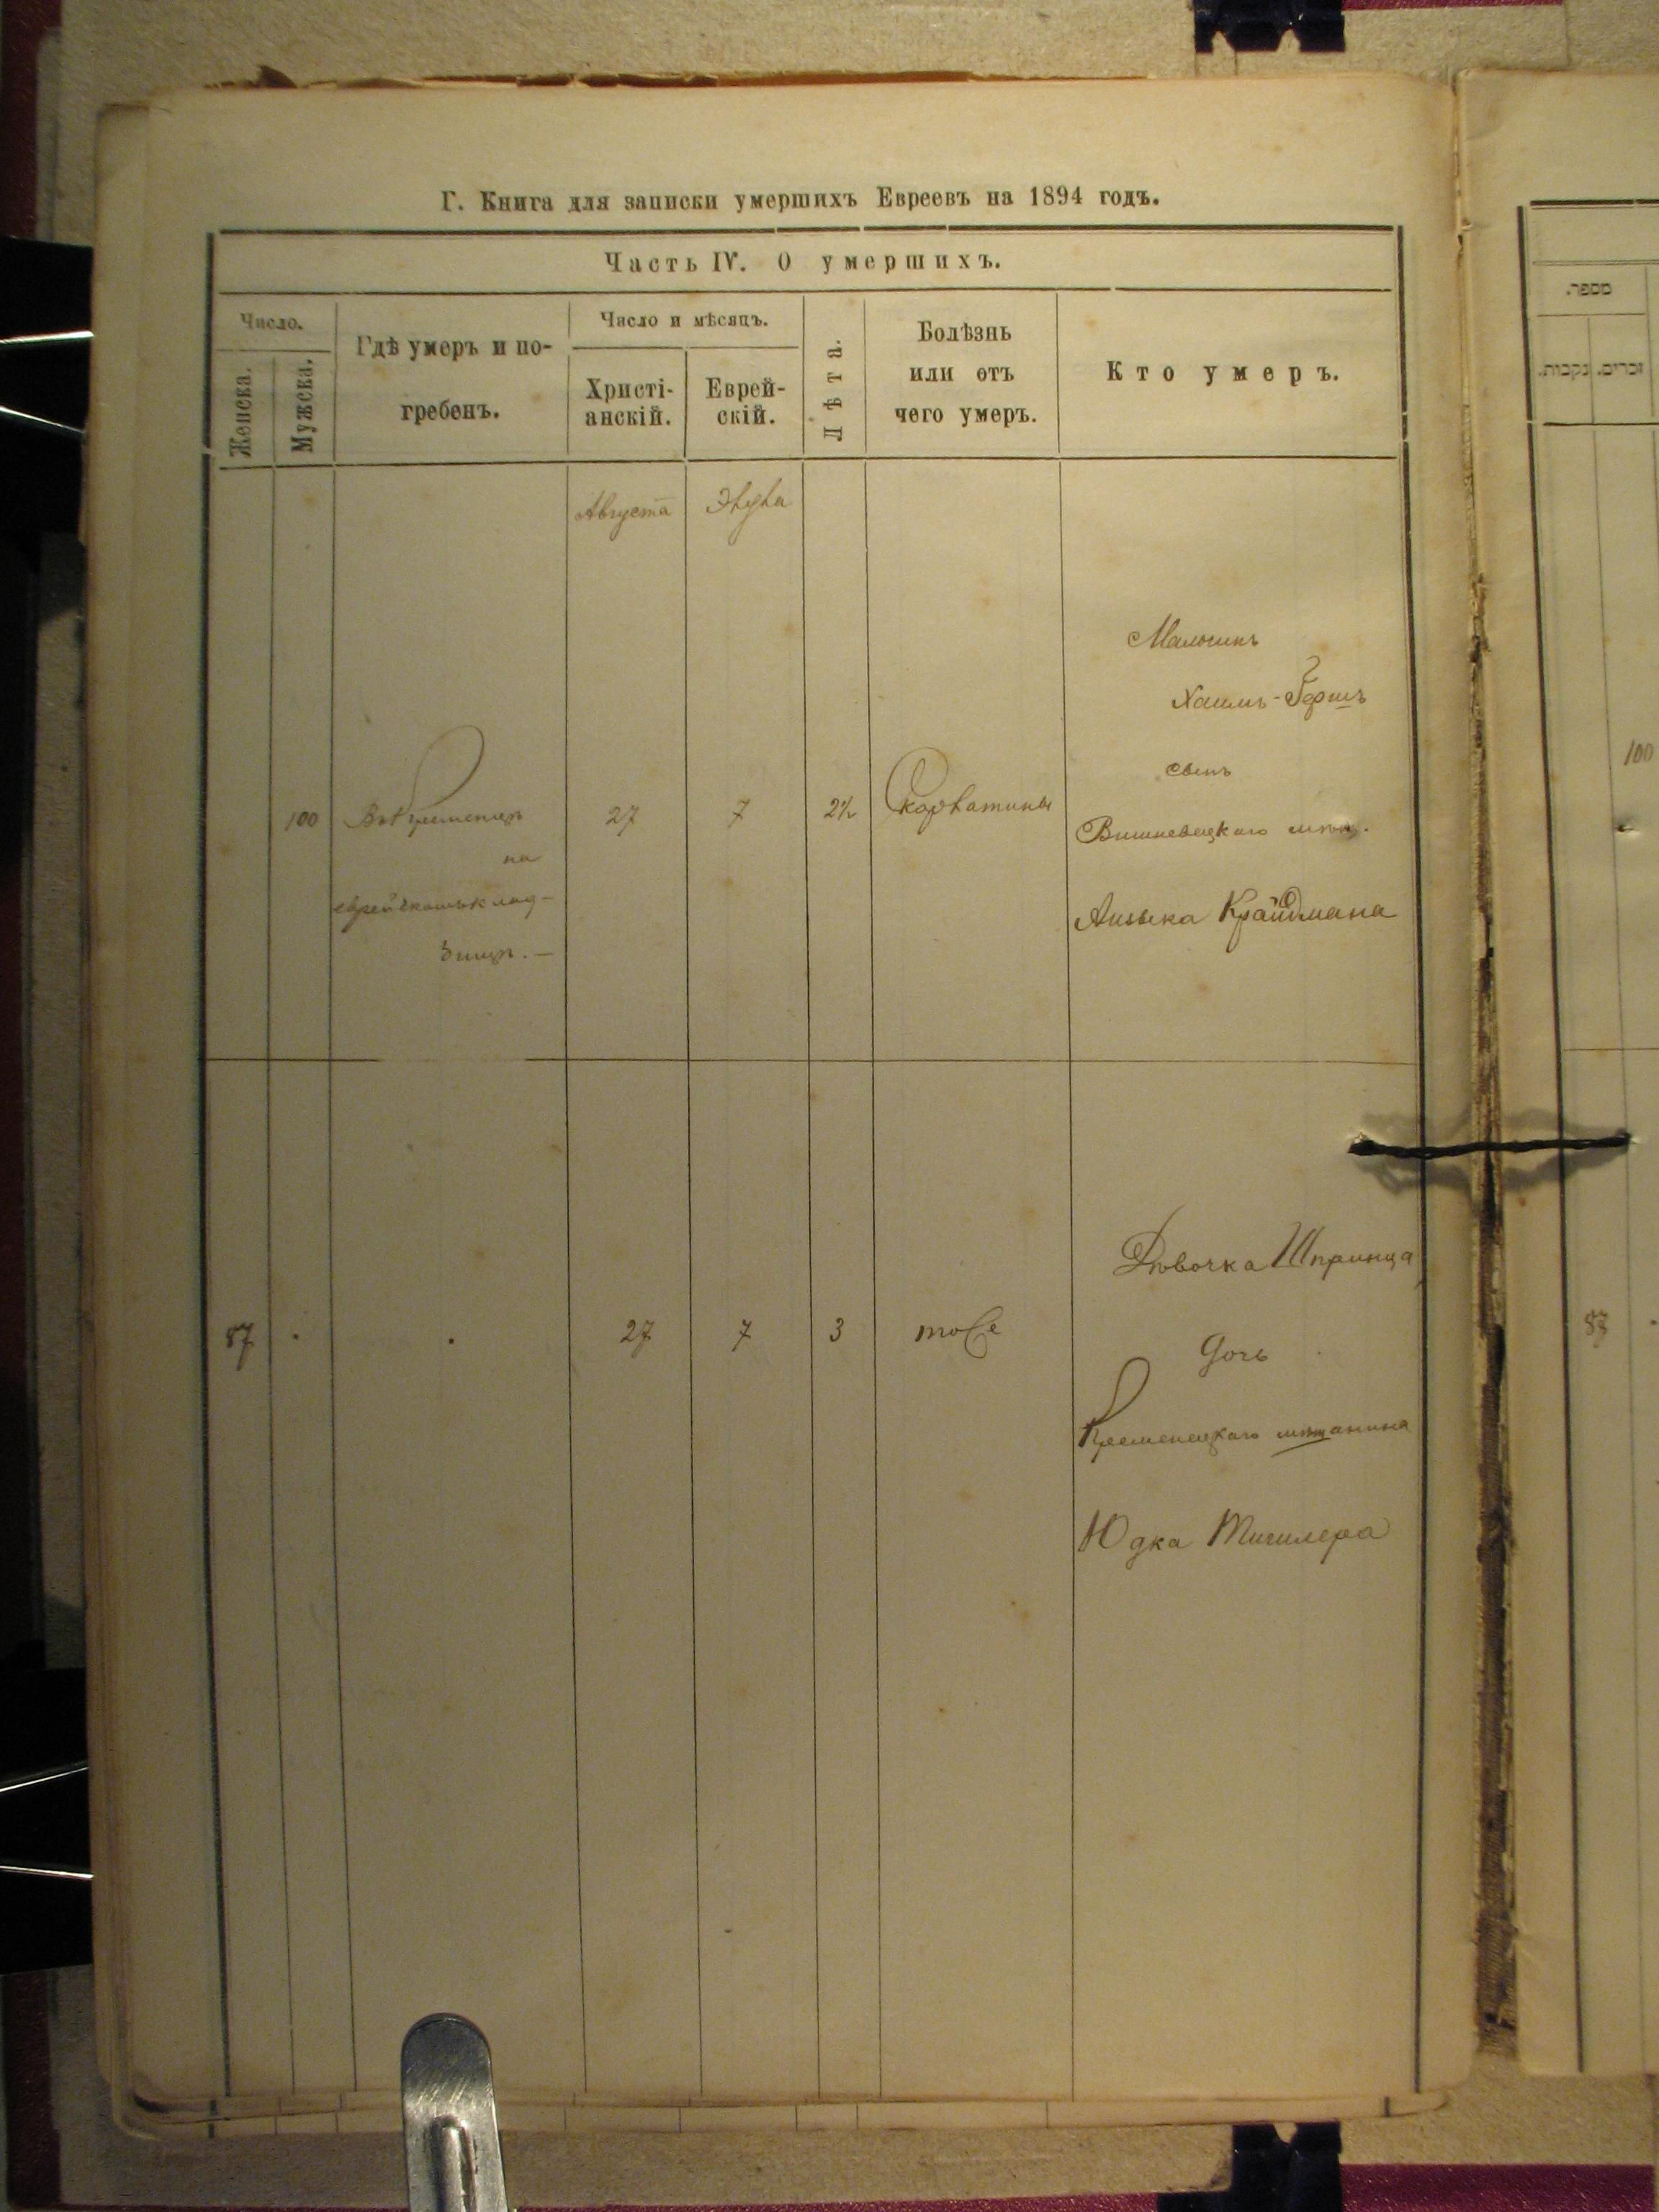 Г. Книга для записки умершихъ Евреевъ на 1894 годъ.
Часть IV. О умершихъ.
Число.
Женска.
Мужска.
Гдѣ умеръ и по-
гребенъ.
Число и мѣсяцъ.
Христі-
анскій.
Еврей-
скій.
Лѣта.
Болѣзнь
или отъ
чего умеръ.
Кто умеръ.
Августа
Элула
Мальчикъ
Хаимъ-Гершъ
сынъ
100
Въ Кременцѣ
27
7
2½
Скарлатины
Вишневецкаго мѣщ.
на
еврейскомъ клад-
бищѣ.—
Аизыка Крайдмана
Дѣвочка Шпринца
87
27
7
3
тоже
дочь
Кременецкаго мѣщанина
Юдка
מספר.
זכרים.
נקבות.
100
87